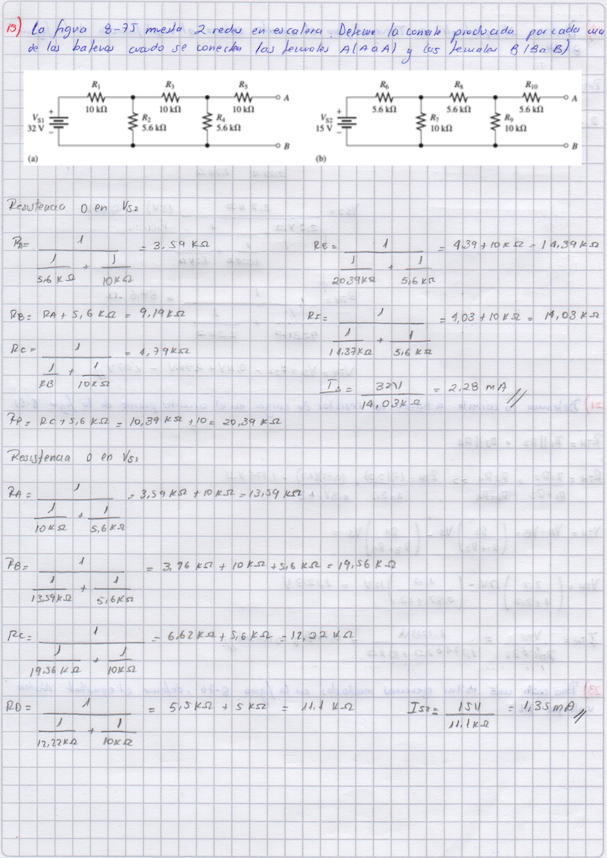 15) La figura 8-75 muestra 2 redes en escalera. Determine la corriente producida por cada una
de las baterías cuando se conectan las terminales A (A a A) y las terminales B (B a B)
R1 R3 R5
10 kΩ 10 kΩ 10 kΩ A
VS1
32 V
R2
5.6 kΩ
R4
5.6 kΩ
B
(a)
R6 R8 R10
5.6 kΩ 5.6 kΩ 5.6 kΩ A
VS2
15 V
R7
10 kΩ
R9
10 kΩ
B
(b)
Resistencia 0 en VS2
RA= 1 / (1/5,6 KΩ + 1/10KΩ) = 3,59 KΩ
RB= RA + 5,6 KΩ = 9,19KΩ
RC= 1 / (1/RB + 1/10KΩ) = 4,79KΩ
RD= RC + 5,6 KΩ = 10,39 KΩ +10 = 20,39 KΩ
RE= 1 / (1/20,39KΩ + 1/5,6 KΩ) = 4,39+10 KΩ = 14,39 KΩ
RF= 1 / (1/14,37KΩ + 1/5,6 KΩ) = 4,03 +10 KΩ = 14,03 KΩ
IS= 32V / 14,03KΩ = 2,28 mA
Resistencia 0 en VS1
RA= 1 / (1/10KΩ + 1/5,6 KΩ) = 3,59 KΩ + 10 KΩ = 13,59KΩ
RB= 1 / (1/13,59KΩ + 1/5,6KΩ) = 3,96 KΩ + 10 KΩ + 5,6 KΩ = 19,56 KΩ
RC= 1 / (1/19,56 KΩ + 1/10KΩ) = 6,62 KΩ + 5,6 KΩ = 12,22 KΩ
RD= 1 / (1/12,22KΩ + 1/10KΩ) = 5,5 KΩ + 5 KΩ = 11,1 KΩ
IS2= 15V / 11,1KΩ = 1,35 mA